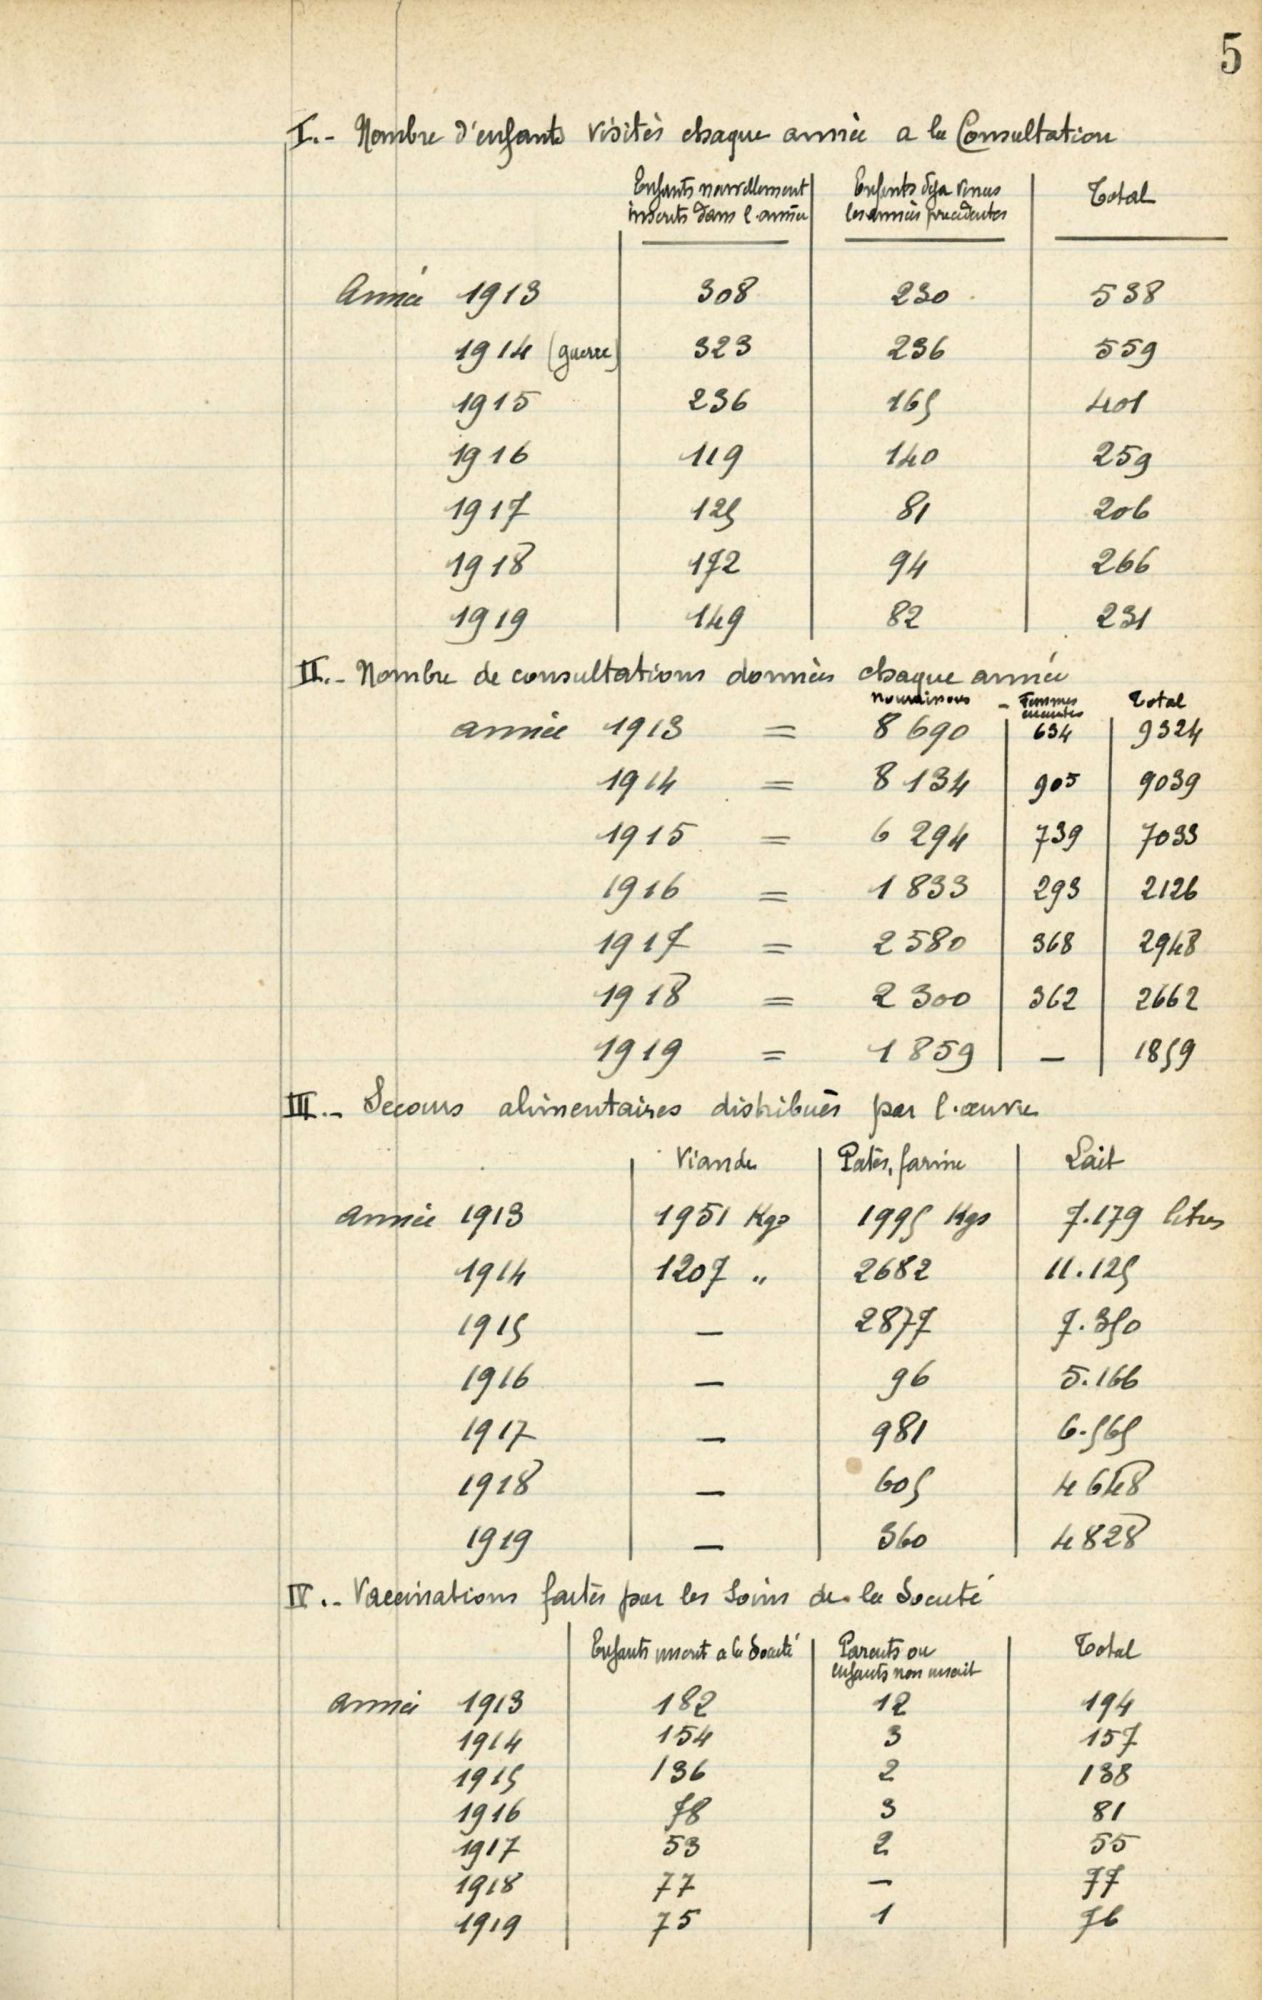 5
I.- Nombre d'enfants visités chaque année a la Consultation
Enfants nouvellement inscrits dans l'année | Enfants deja venus les années precedentes | Total
Année 1913 308 230 538
1914 (guerre) 323 236 559
1915 236 165 401
1916 119 140 259
1917 125 81 206
1918 172 94 266
1919 149 82 231
II.- Nombre de consultations données chaque année
nourrissons - Femmes enceintes Total
année 1913 = 8690 634 9324
1914 = 8134 905 9039
1915 = 6294 739 7033
1916 = 1833 293 2126
1917 = 2580 368 2948
1918 = 2300 362 2662
1919 = 1859 — 1859
III.- Secours alimentaires distribués par l'œuvre
Viande Patés, farine Lait
année 1913 1951 Kgs 1995 Kgs 7.179 litres
1914 1207 " 2682 11.125
1915 — 2877 7.350
1916 — 96 5.166
1917 — 981 6.565
1918 — 605 4648
1919 — 360 4828
IV.- Vaccinations faites par les soins de la Société
Enfants inscrit a la Société | Parents ou enfants non inscrit | Total
année 1913 182 12 194
1914 154 3 157
1915 136 2 138
1916 78 3 81
1917 53 2 55
1918 77 — 77
1919 75 1 76